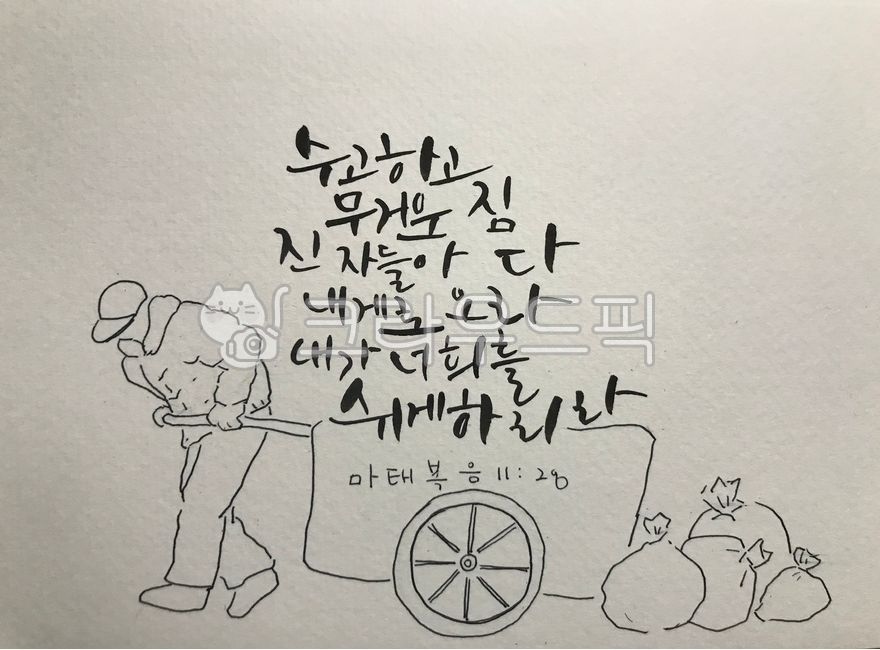 수고하고
무거운 짐
진 자들아 다
내게로 오라
크라우드픽
내가 너희를
쉬게하리라
마태복음 11:28